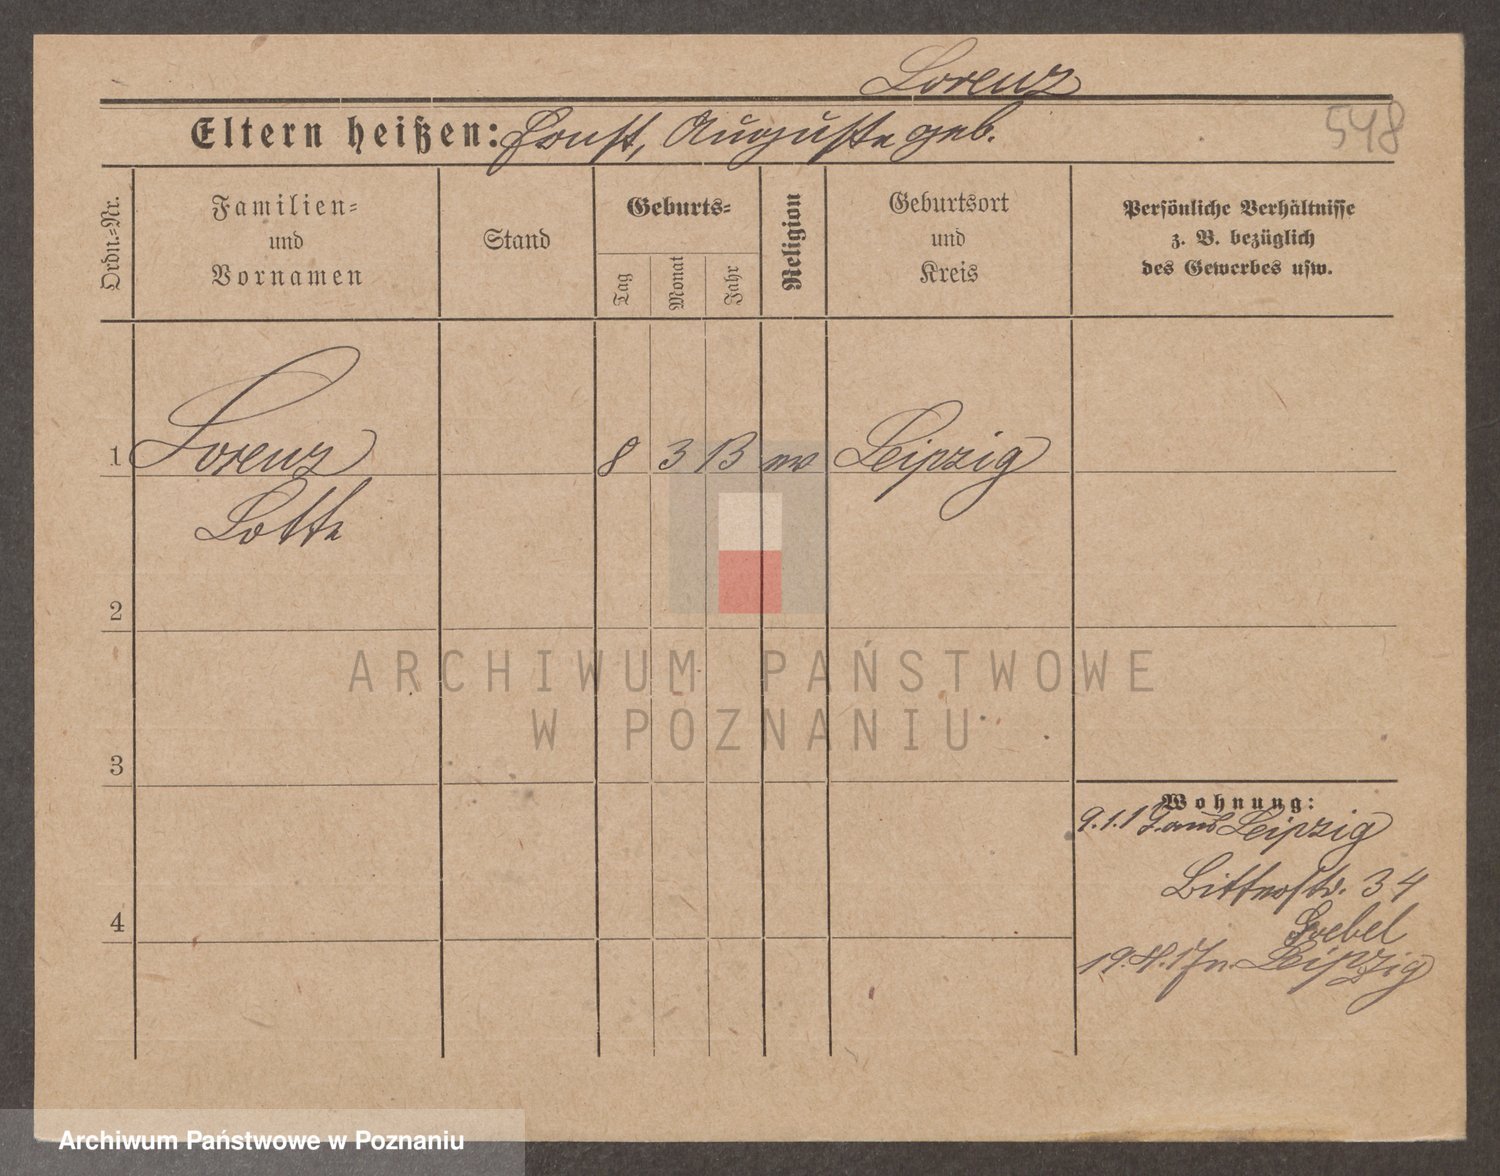 Lorenz
Eltern heißen: Ernst, Auguste geb.
548
Ordn.-Nr.
Familien-
und
Vornamen
Stand
Geburts-
Tag
Monat
Jahr
Religion
Geburtsort
und
Kreis
Persönliche Verhältnisse
z. B. bezüglich
des Gewerbes usw.
1 Lorenz 8 3 13 ev Leipzig
Lotte
2
3
4
Wohnung:
9.1.17 aus Leipzig
34
Goebel
19. 17 n. Leipzig
ARCHIWUM PAŃSTWOWE
W POZNANIU
Archiwum Państwowe w Poznaniu